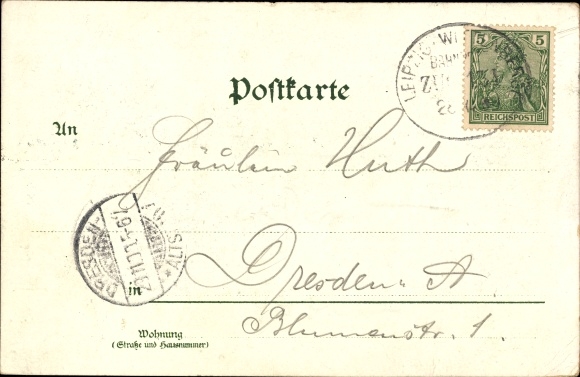 LEIPZIG
BAHN
5 5
REICHSPOST
Postkarte
An
Fräulein Huth
DRESDEN-ALTST.
in
Dresden A
Blumenstr. 1.
Wohnung
(Straße und Hausnummer)